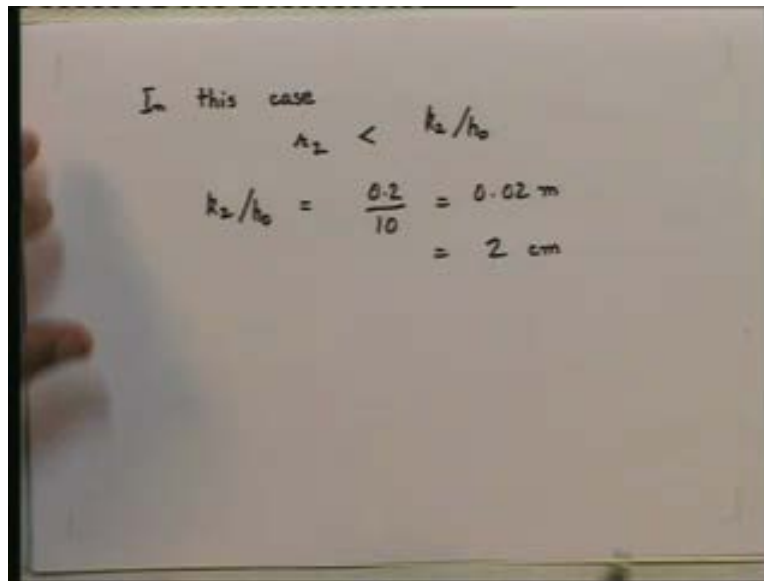 In this case
r₂ < k₂/h₀
k₂/h₀ = 0.2/10 = 0.02 m
= 2 cm